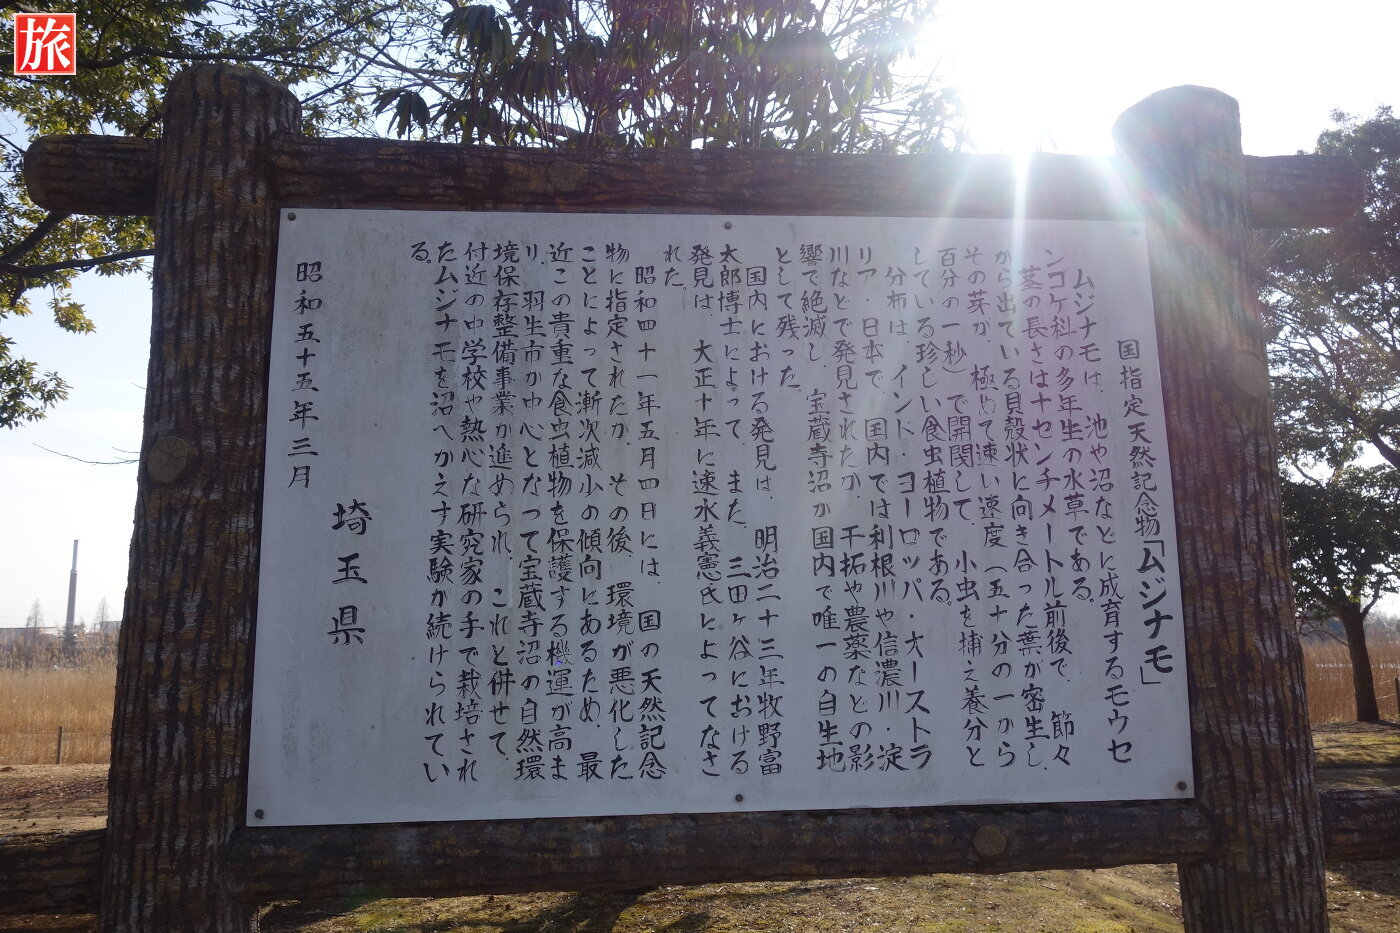 旅
国指定天然記念物「ムジナモ」
ムジナモは、池や沼などに成育するモウセ
ンゴケ科の多年生の水草である。
茎の長さは十センチメートル前後で、節々
から出ている貝殻状に向き合った葉が密生し、
その芽が、極めて速い速度(五十分の一から
百分の一秒)で開閉して、小虫を捕え養分と
している珍しい食虫植物である。
分布は、インド・ヨーロッパ・オーストラ
リア・日本で、国内では利根川や信濃川・淀
川などで発見されたが、干拓や農薬などの影
響で絶滅し、宝蔵寺沼が国内で唯一の自生地
として残った。
国内における発見は、明治二十三年牧野富
太郎博士によって、また、三田ヶ谷における
発見は、大正十年に速水義憲氏によってなさ
れた。
昭和四十一年五月四日には、国の天然記念
物に指定されたが、その後、環境が悪化した
ことによって漸次減少の傾向にあるため、最
近この貴重な食虫植物を保護する機運が高ま
り、羽生市が中心となって宝蔵寺沼の自然環
境保存整備事業が進められ、これと併せて、
付近の中学校や熱心な研究家の手で栽培され
たムジナモを沼へかえす実験が続けられてい
る。
昭和五十五年三月
埼玉県